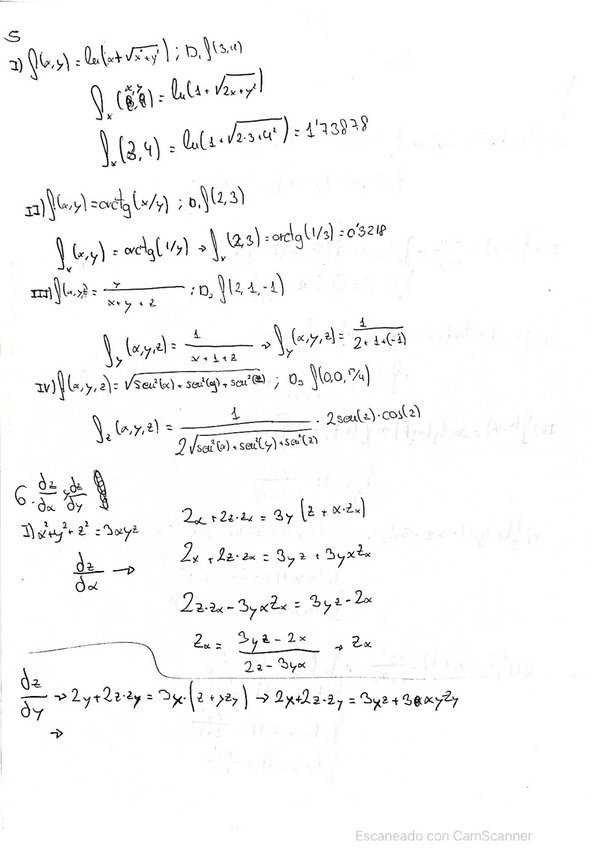 5
I) f(x,y) = ln(x+√x²+y²) ; D₁ f(3,4)
fₓ(x,y) = ln(1+√2x+y²)
fₓ(3,4) = ln(1+√2·3+4²) = 1'73878
II) f(x,y) = arctg(x/y) ; D₁ f(2,3)
fₓ(x,y) = arctg(1/y) → fₓ(2,3) = arctg(1/3) = 0'3218
III) f(x,y,z) = y/(x+y+z) ; D₂ f(2,1,-1)
f_y(x,y,z) = 1/(x+1+z) → f_y(x,y,z) = 1/(2+1+(-1))
IV) f(x,y,z) = √sen²(x)+sen²(y)+sen²(z) ; D₃ f(0,0,π/4)
f_z(x,y,z) = 1/(2√sen²(x)+sen²(y)+sen²(z)) · 2sen(z)·cos(z)
6. dz/dx y dz/dy
I) x²+y²+z² = 3xyz
2x+2z·zₓ = 3y(z+x·zₓ)
dz/dx →
2x+2z·zₓ = 3yz+3yxzₓ
2z·zₓ-3yxzₓ = 3yz-2x
zₓ = (3yz-2x)/(2z-3yx) → zₓ
dz/dy → 2y+2z·zy = 3x·(z+yzy) → 2x+2z·zy = 3yz+3xyzy
→
Escaneado con CamScanner